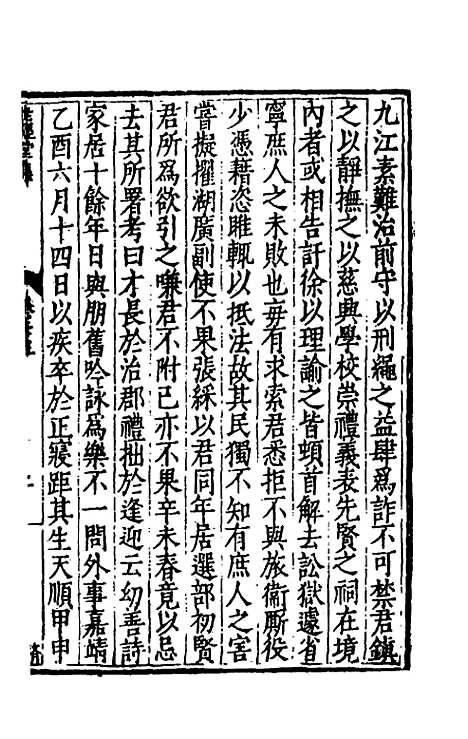 九江素難治前守以刑繩之益肆為詐不可禁君鎮
之以靜撫之以慈典學校崇禮義表先賢之祠在境
內者或相告訐徐以理諭之皆頓首解去訟獄遽省
寧庶人之未敗也毋有求索君悉拒不與旅衞厮役
少憑藉恣睢輒以抵法故其民獨不知有庶人之害
嘗擬擢湖廣副使不果張綵以君同年居選部初賢
君所為欲引之嗛君不附己亦不果辛未春竟以忌
去其所署考曰才長於治郡禮拙於逢迎云㓜善詩
家居十餘年日與朋舊吟詠為樂不一問外事嘉靖
乙酉六月十四日以疾卒於正寢距其生天順甲申